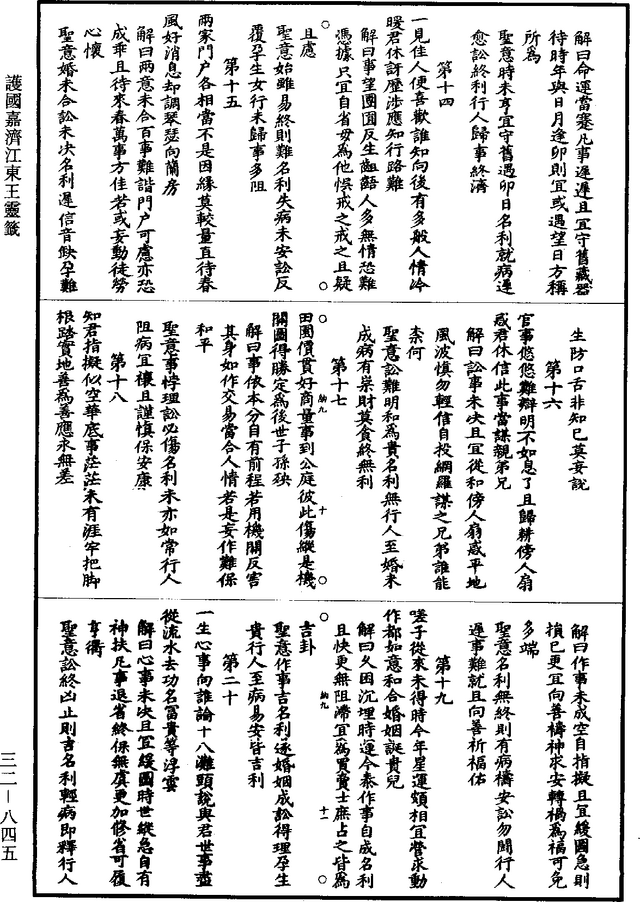 解曰命運當蹇凡事遲遲且宜守舊藏器
待時年與日月逢卯則宜或遇望日方稱
所為
聖意時未亨宜守舊遇卯日名利就病遲
愈訟終利行人歸事終濟
第十四
一見佳人便喜歡誰知向後有多般人情冷
暖君休訝歷涉應知行路難
解曰事望團圓反生齟齬人多無情恐難
憑據只宜自省毋為他悞戒之戒之且疑
且慮
聖意始雖易終則難名利失病未安訟反
覆孕生女行未歸事多阻
第十五
兩家門户各相當不是因緣莫較量直待春
風好消息却調琴瑟向蘭房
解曰兩意未合百事難諧門户可慮亦恐
成乖且待來春萬事方佳若或妄動徒勞
心懷
聖意婚未合訟未決名利遲信音缺孕難
生防口舌非知已莫妄說
第十六
官事悠悠難辯明不如息了且歸耕傍人扇
惑君休信此事當謀親弟兄
解曰訟事未決且宜從和傍人扇惑平地
風波慎勿輕信自投網羅謀之兄弟誰能
柰何
聖意訟難明和為貴名利無行人至婚未
成病有祟財莫貪終無利
第十七
田園價貫好商量事到公庭彼此傷縱是機
關圖得勝定為後世子孫殃
解曰事依本分自有前程若用機關反害
其身如作交易當合人情若是妄作難保
和平
聖意事悖理訟必傷名利未亦如常行人
阻病宜禳且謹慎保安康
第十八
知君指擬似空華底事茫茫未有涯牢把脚
根踏實地善為善應永無差
解曰作事未成空自指擬且宜緩圖急則
損已更宜向善禱神求安轉禍為福可免
多端
聖意名利無終則有病禱安訟勿鬪行人
遲事難就且向善祈福佑
第十九
嗟子從來未得時今年星運頗相宜營求動
作都如意和合婚姻誕貴兒
解曰久困沉埋時運今泰作事自成名利
且快更無阻滯宜為買賣士庶占之皆為
吉卦
聖意作事吉名利逐婚姻成訟得理孕生
貴行人至病易安皆吉利
第二十
一生心事向誰論十八灘頭說與君世事盡
從流水去功名冨貴等浮雲
解曰心事未決且宜緩圖時世縱急自有
神扶凡事退省終保無虞更加修省可履
亨衢
聖意訟終凶止則吉名利輕病即釋行人
護國嘉濟江東王靈籤
三二－八四五
納九
十
納九
十一